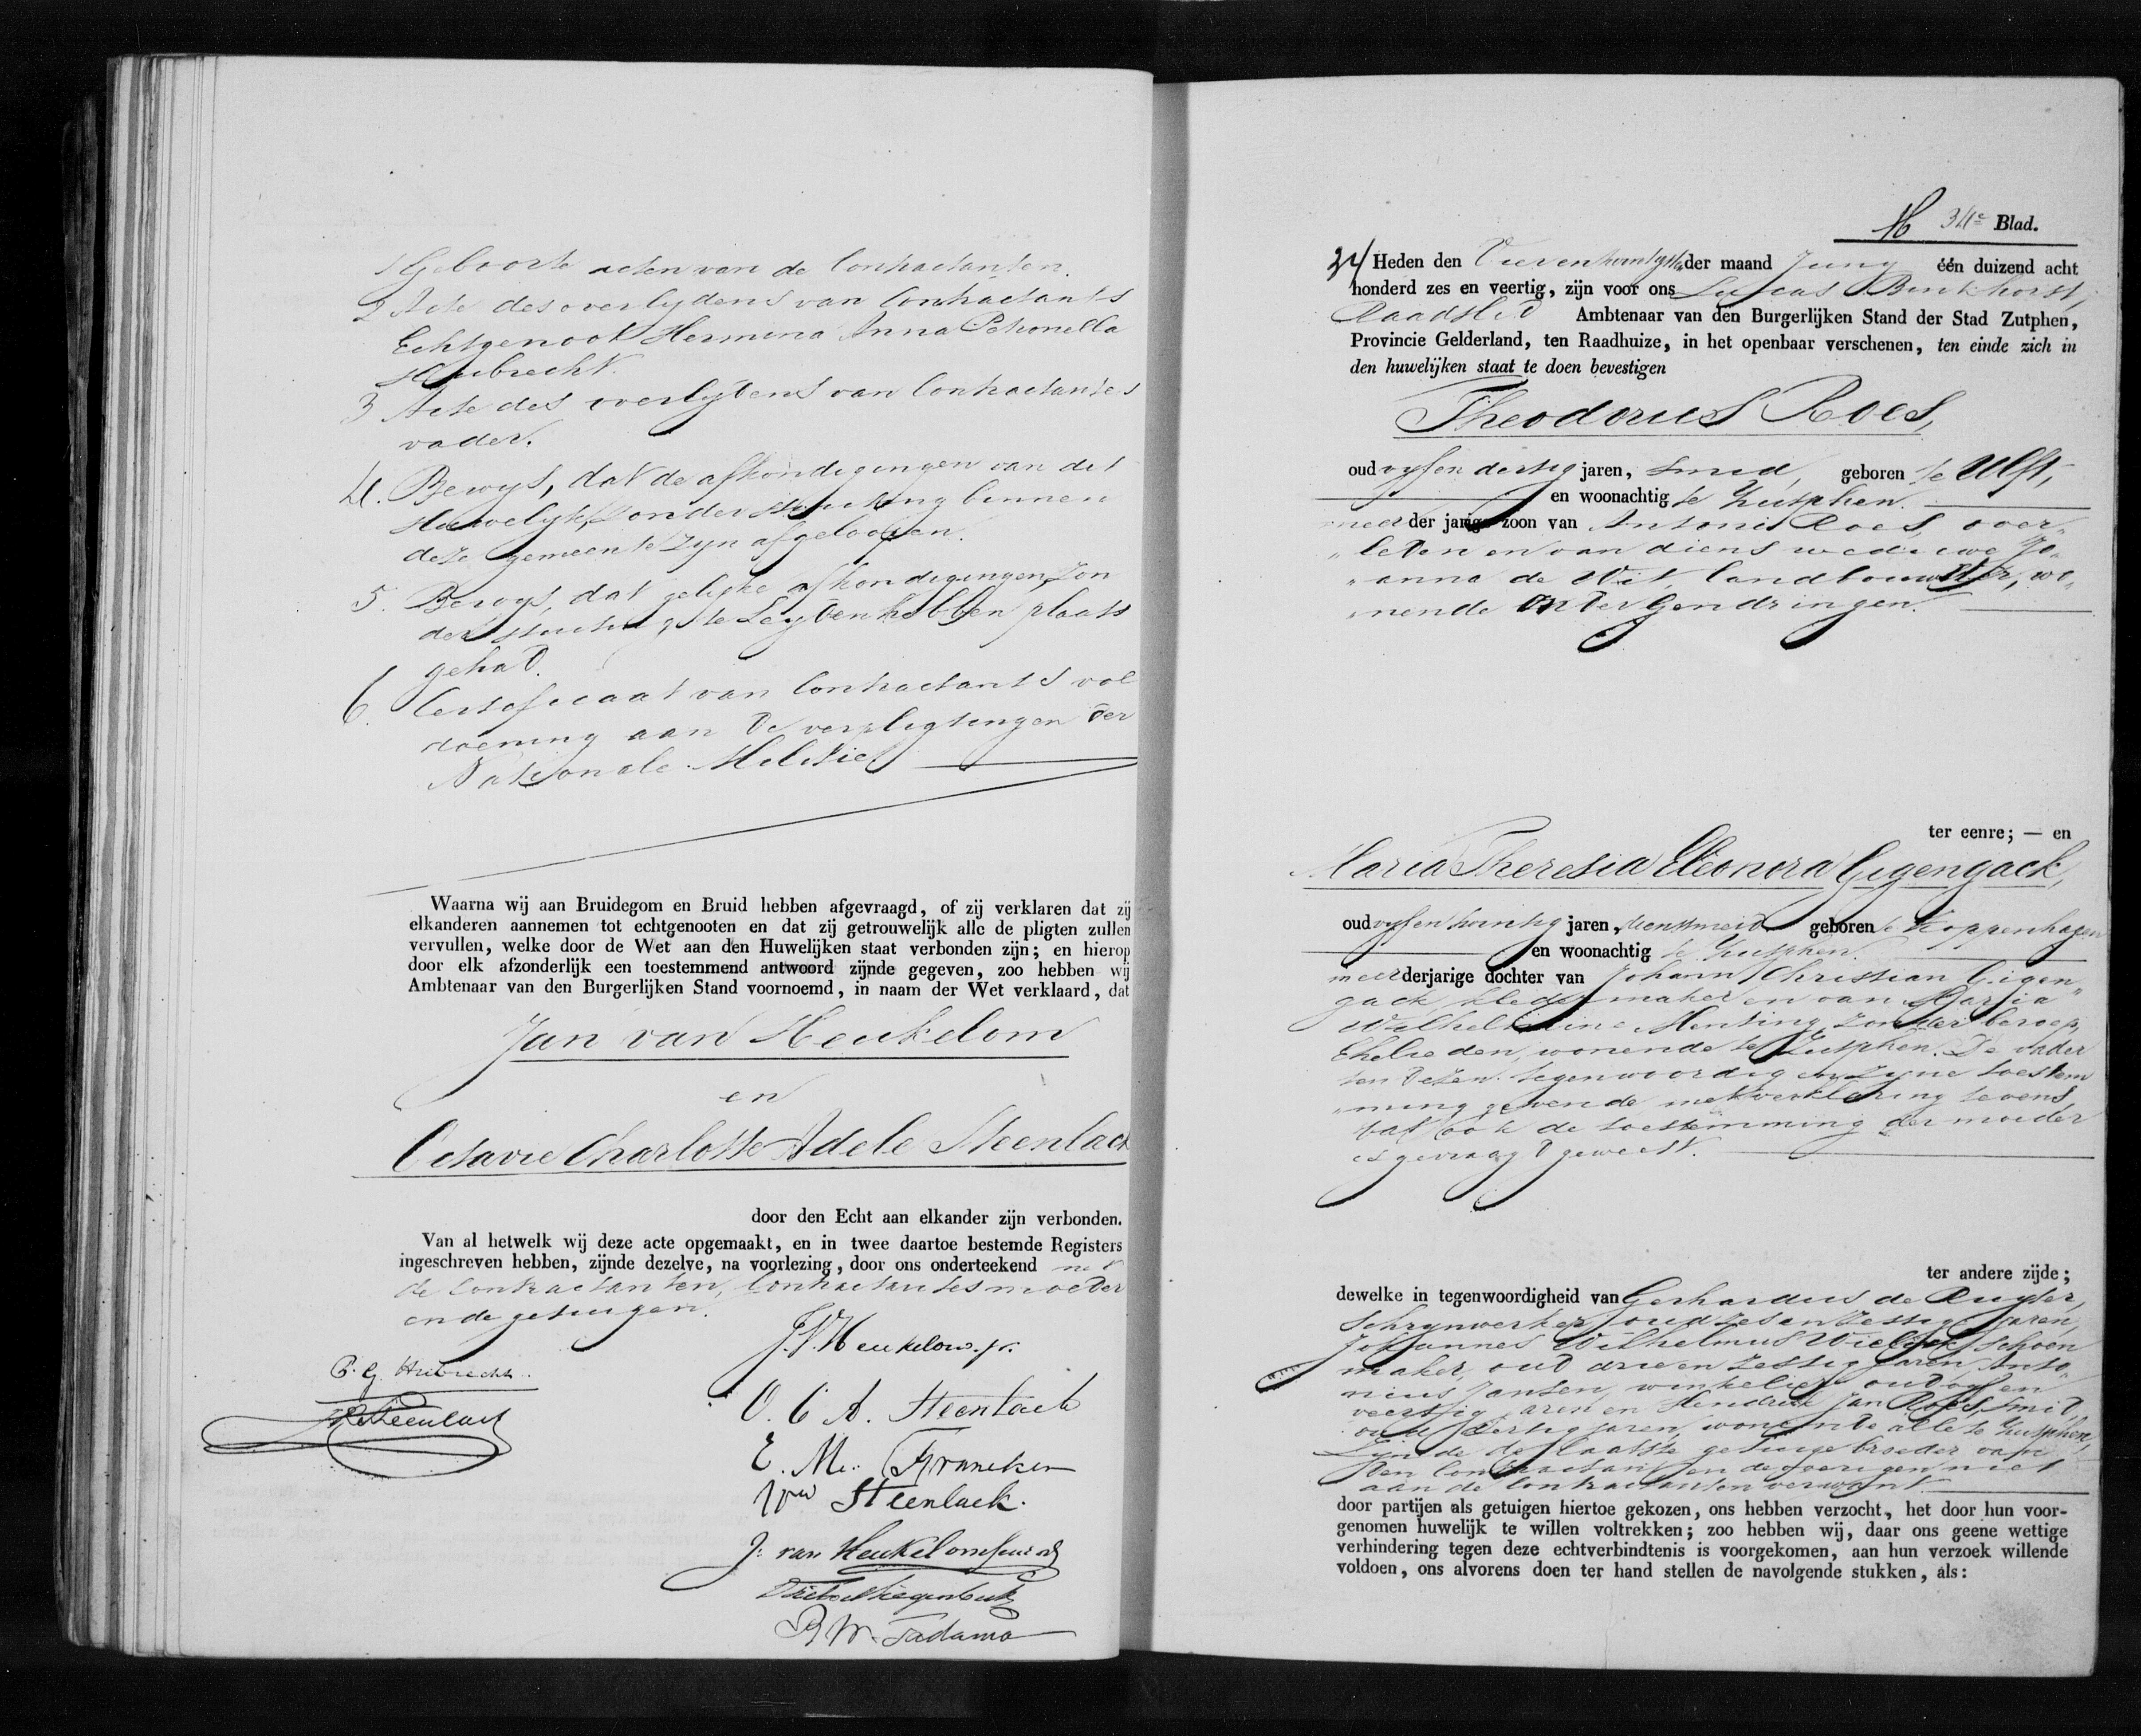 1 Geboorte acten van de Contractanten.
2 Acte des overlydens van Contractants
Echtgenoot Hermina Anna Petronella
Huibrecht.
3 Acte des overlydens van Contractantes
vader.
4. Bewys, dat de afkondigingen van dit
Huwelyk, zonder stuiting binnen
deze gemeente zyn afgeloopen.
5. Bewys, dat gelyke afkondigingen, zon
der stuiting te Leyden hebben plaats
gehad.
6. Certificaat van Contractants vol
doening aan de verpligtingen der
Nationale Militie
Waarna wij aan Bruidegom en Bruid hebben afgevraagd, of zij verklaren dat zij
elkanderen aannemen tot echtgenooten en dat zij getrouwelijk alle de pligten zullen
vervullen, welke door de Wet aan den Huwelijken staat verbonden zijn; en hierop
door elk afzonderlijk een toestemmend antwoord zijnde gegeven, zoo hebben wij
Ambtenaar van den Burgerlijken Stand voornoemd, in naam der Wet verklaard, dat
Jan van Heukelom
en
Octavie Charlotte Adele Steenlack
door den Echt aan elkander zijn verbonden.
Van al hetwelk wij deze acte opgemaakt, en in twee daartoe bestemde Registers
ingeschreven hebben, zijnde dezelve, na voorlezing, door ons onderteekend met
de Contractanten, Contractantes moeder
en de getuigen.
J. V. Heukelom. jr.
P. G. Huibrecht.
O. C. A. Steenlack
Steenlack
E. M. Franeken
Wed Steenlack.
J. van Heukelom
R W. Tadama
34e Blad.
34 Heden den Vierentwintigsten der maand Juny één duizend acht
honderd zes en veertig, zijn voor ons Lucas Binkhorst,
Raadslid Ambtenaar van den Burgerlijken Stand der Stad Zutphen,
Provincie Gelderland, ten Raadhuize, in het openbaar verschenen, ten einde zich in
den huwelijken staat te doen bevestigen
Theodorus Roes,
oud vyfen dertig jaren, Smid, geboren te Ulft,
en woonachtig te Zutphen.
meerder jarige zoon van Antoni Roes, over„
„leden en van diens weduwe Jo„
„anna de Wit, landbouwster, wo„
„nende onder Gendringen.
ter eenre; — en
Maria Theresia Eleonora Gigengack,
oud vyfen twintig jaren, dienstmeid geboren te Koppenhagen
en woonachtig te Zutphen.
meerderjarige dochter van Johann Christian Gigen„
gack, kledermaker en van Maria
Wilhelmine Menting, zonder beroep,
Ehelieden, wonende te Zutphen. De vader
ten dezen tegenwoordig en zyne toestem
„ming gevende met verklaring tevens
dat ook de toestemming der moeder
is gevraagd geweest.
ter andere zijde;
dewelke in tegenwoordigheid van Gerhardus de Ruyter,
Schrynwerker, oud zes en zestig jaren,
Johannes Wilhelmus schoen
maker, oud drie en zestig jaren Anto„
nius Jansen, winkelier oud vyf en
veertig jaren en Hendrik Jan Roes, Smid,
oud dertig jaren, wonende alle te Zutphen,
Zynde de laatste getuige broeder van
den Contractant en de overigen niet
aan de Contractanten verwant.
door partijen als getuigen hiertoe gekozen, ons hebben verzocht, het door hun voor-
genomen huwelijk te willen voltrekken; zoo hebben wij, daar ons geene wettige
verhindering tegen deze echtverbindtenis is voorgekomen, aan hun verzoek willende
voldoen, ons alvorens doen ter hand stellen de navolgende stukken, als: